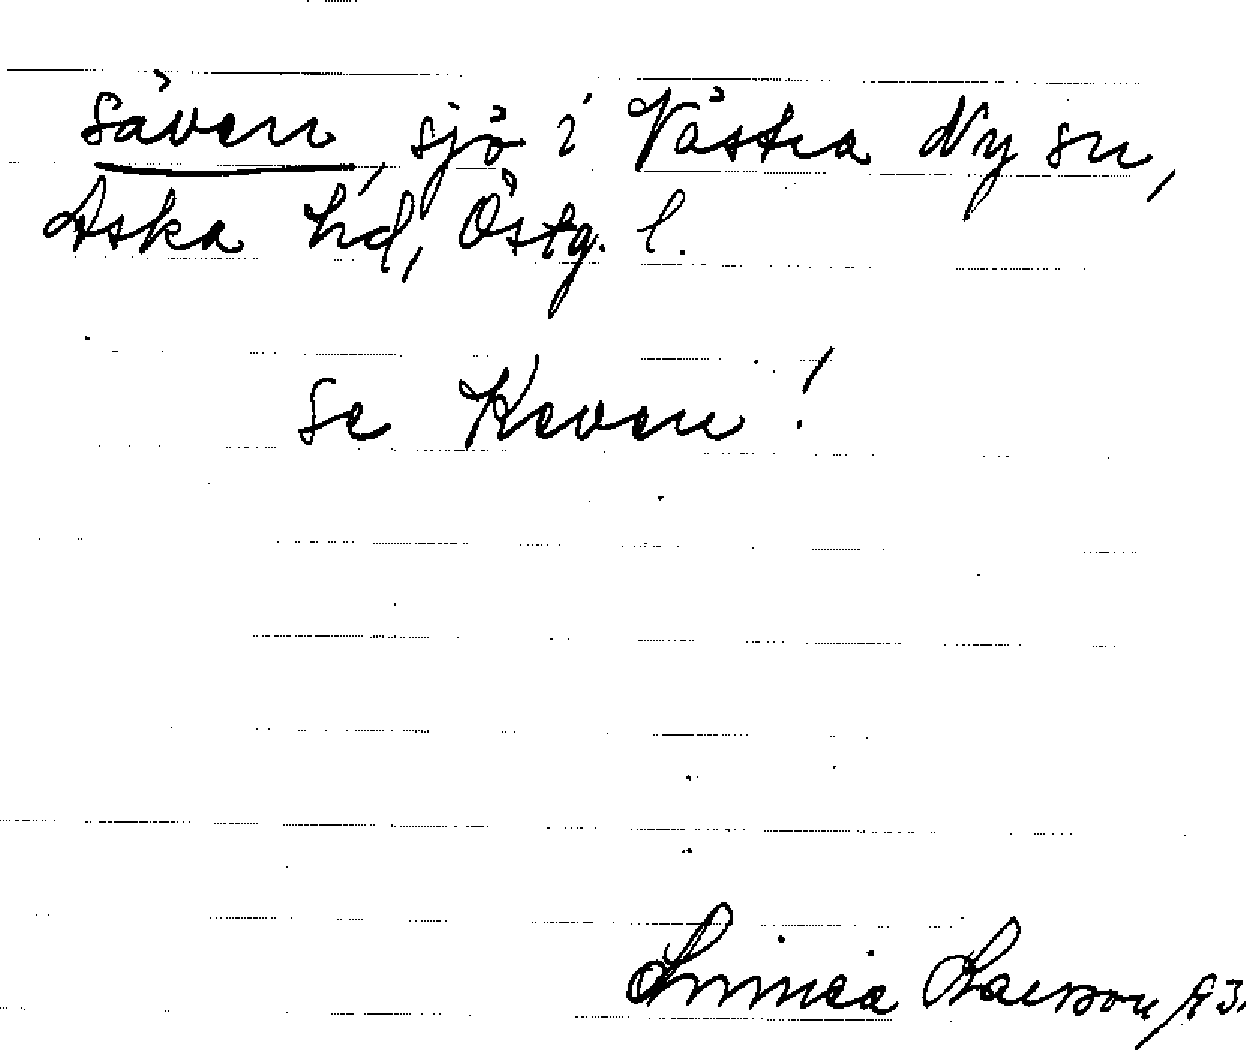 säven, sjö i Västra Ny sn,
Aska hd, Östg. l.
Se Keven!
Linnea Larsson /93